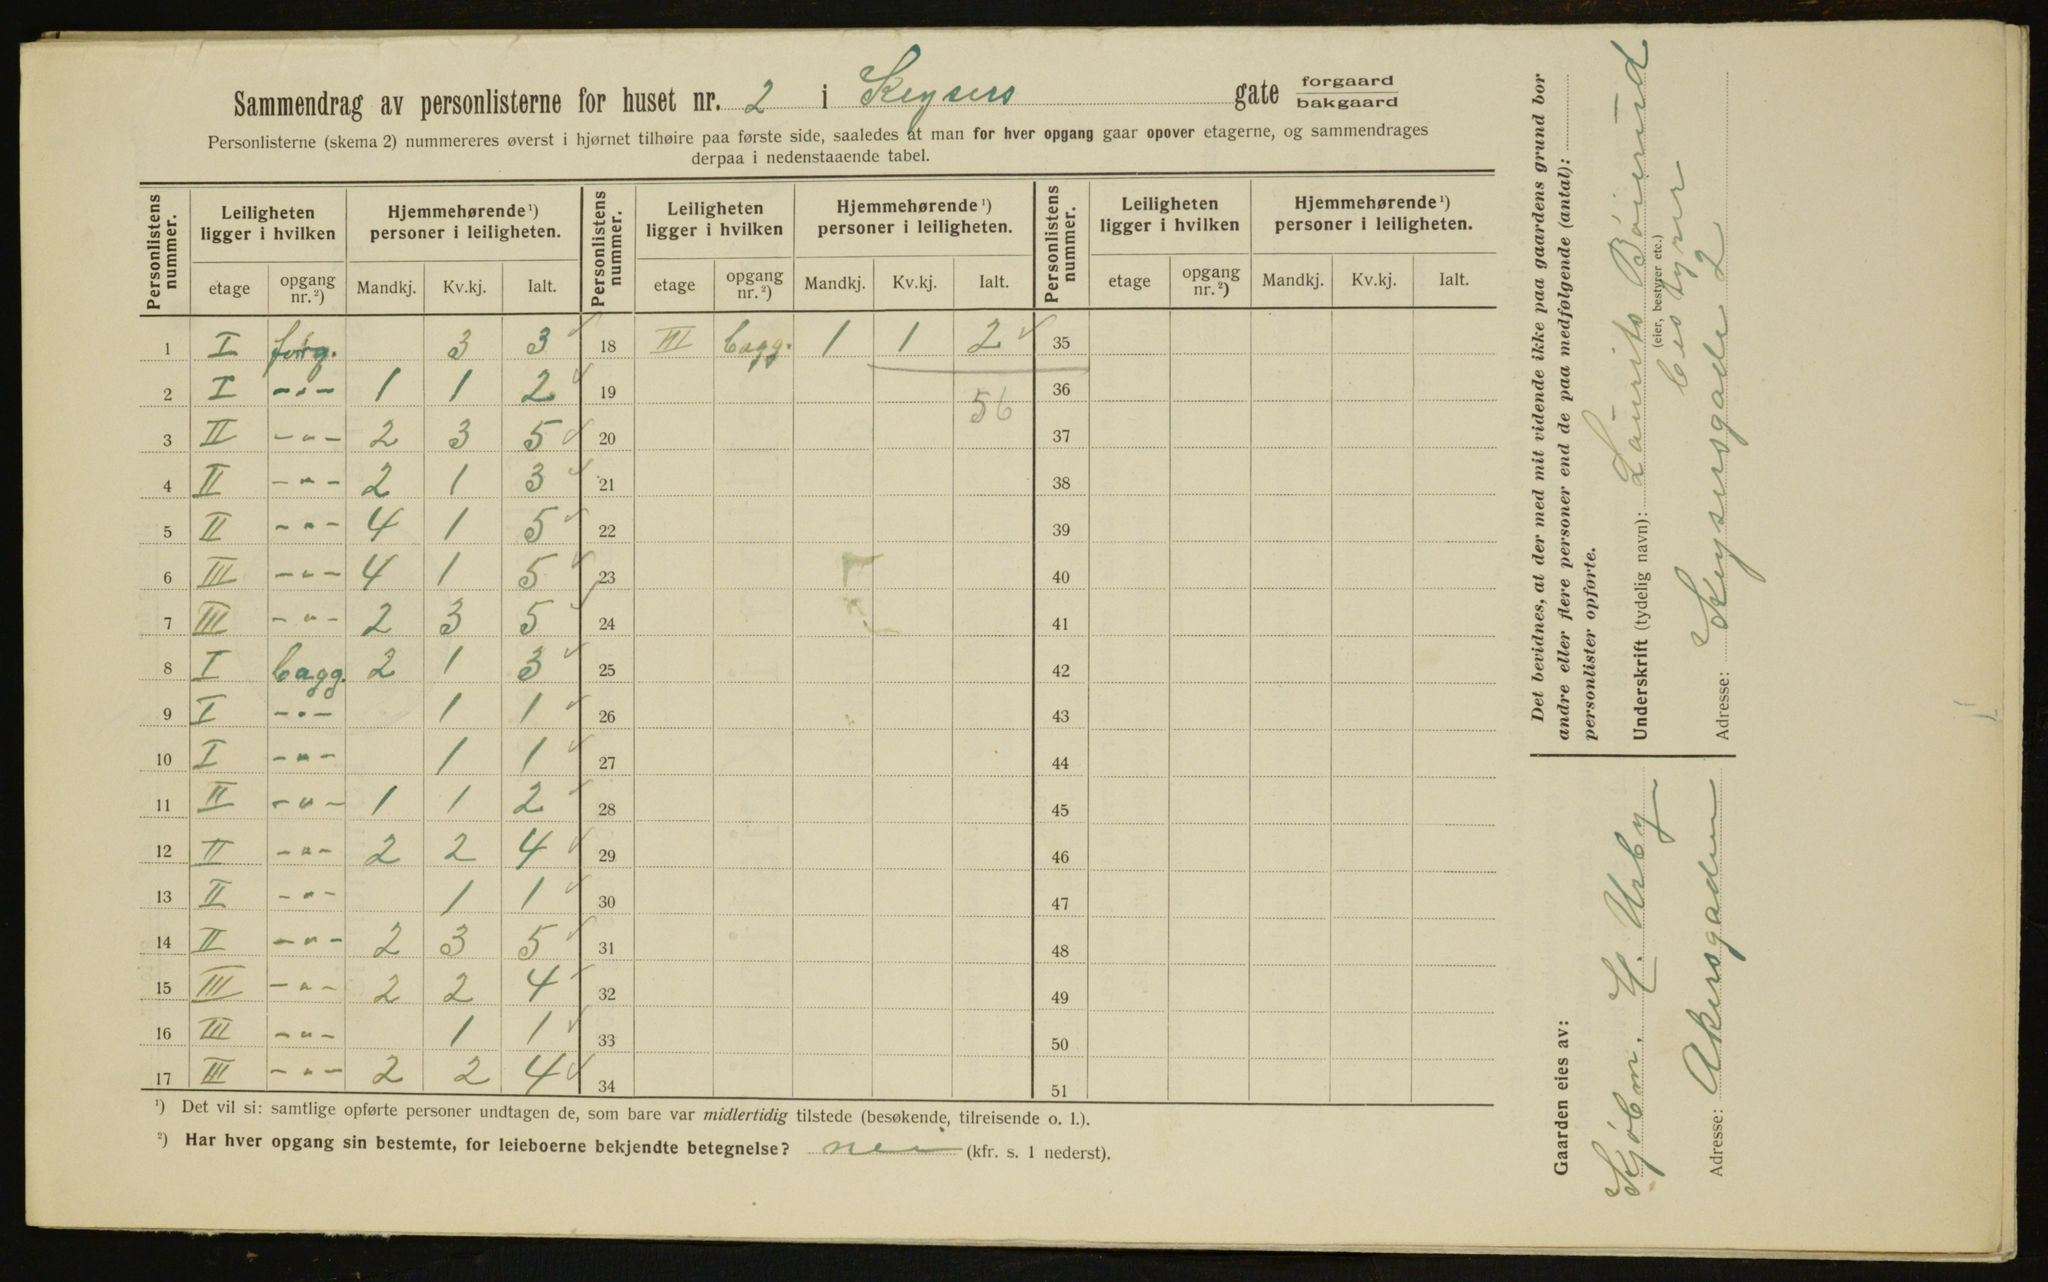 Sammendrag av personlisterne for huset nr. 2 i Keysers gate forgaard
bakgaard
Personlisterne (skema 2) nummereres øverst i hjørnet tilhøire paa første side, saaledes at man for hver opgang gaar opover etagerne, og sammendrages
derpaa i nedenstaaende tabel.
Personlistens nummer. Leiligheten ligger i hvilken Hjemmehørende ¹) personer i leiligheten. Personlistens nummer. Leiligheten ligger i hvilken Hjemmehørende ¹) personer i leiligheten. Personlistens nummer. Leiligheten ligger i hvilken Hjemmehørende ¹) personer i leiligheten.
etage opgang nr. ²) Mandkj. Kv.kj. Ialt. etage opgang nr. ²) Mandkj. Kv.kj. Ialt. etage opgang nr. ²) Mandkj. Kv.kj. Ialt.
1 I forg. 3 3 18 III bagg. 1 1 2 35
2 I -"- 1 1 2 19 56 36
3 II -"- 2 3 5 20 37
4 II -"- 2 1 3 21 38
5 II -"- 4 1 5 22 39
6 III -"- 4 1 5 23 40
7 III -"- 2 3 5 24 41
8 I bagg. 2 1 3 25 42
9 I -"- 1 1 26 43
10 I -"- 1 1 27 44
11 II -"- 1 1 2 28 45
12 II -"- 2 2 4 29 46
13 II -"- 1 1 30 47
14 II -"- 2 3 5 31 48
15 III -"- 2 2 4 32 49
16 III -"- 1 1 33 50
17 III -"- 2 2 4 34 51
¹) Det vil si: samtlige opførte personer undtagen de, som bare var midlertidig tilstede (besøkende, tilreisende o. l.).
²) Har hver opgang sin bestemte, for leieboerne bekjendte betegnelse? nei (kfr. s. 1 nederst).
Det bevidnes, at der med mit vidende ikke paa gaardens grund bor
andre eller flere personer end de paa medfølgende (antal):
personlister opførte.
Underskrift (tydelig navn): Laurits Böierud
(eier, bestyrer etc.)
bestyrer
Adresse: Keysersgade 2
Gaarden eies av:
Kjøbm. H. Urby
Adresse: Akersgaden